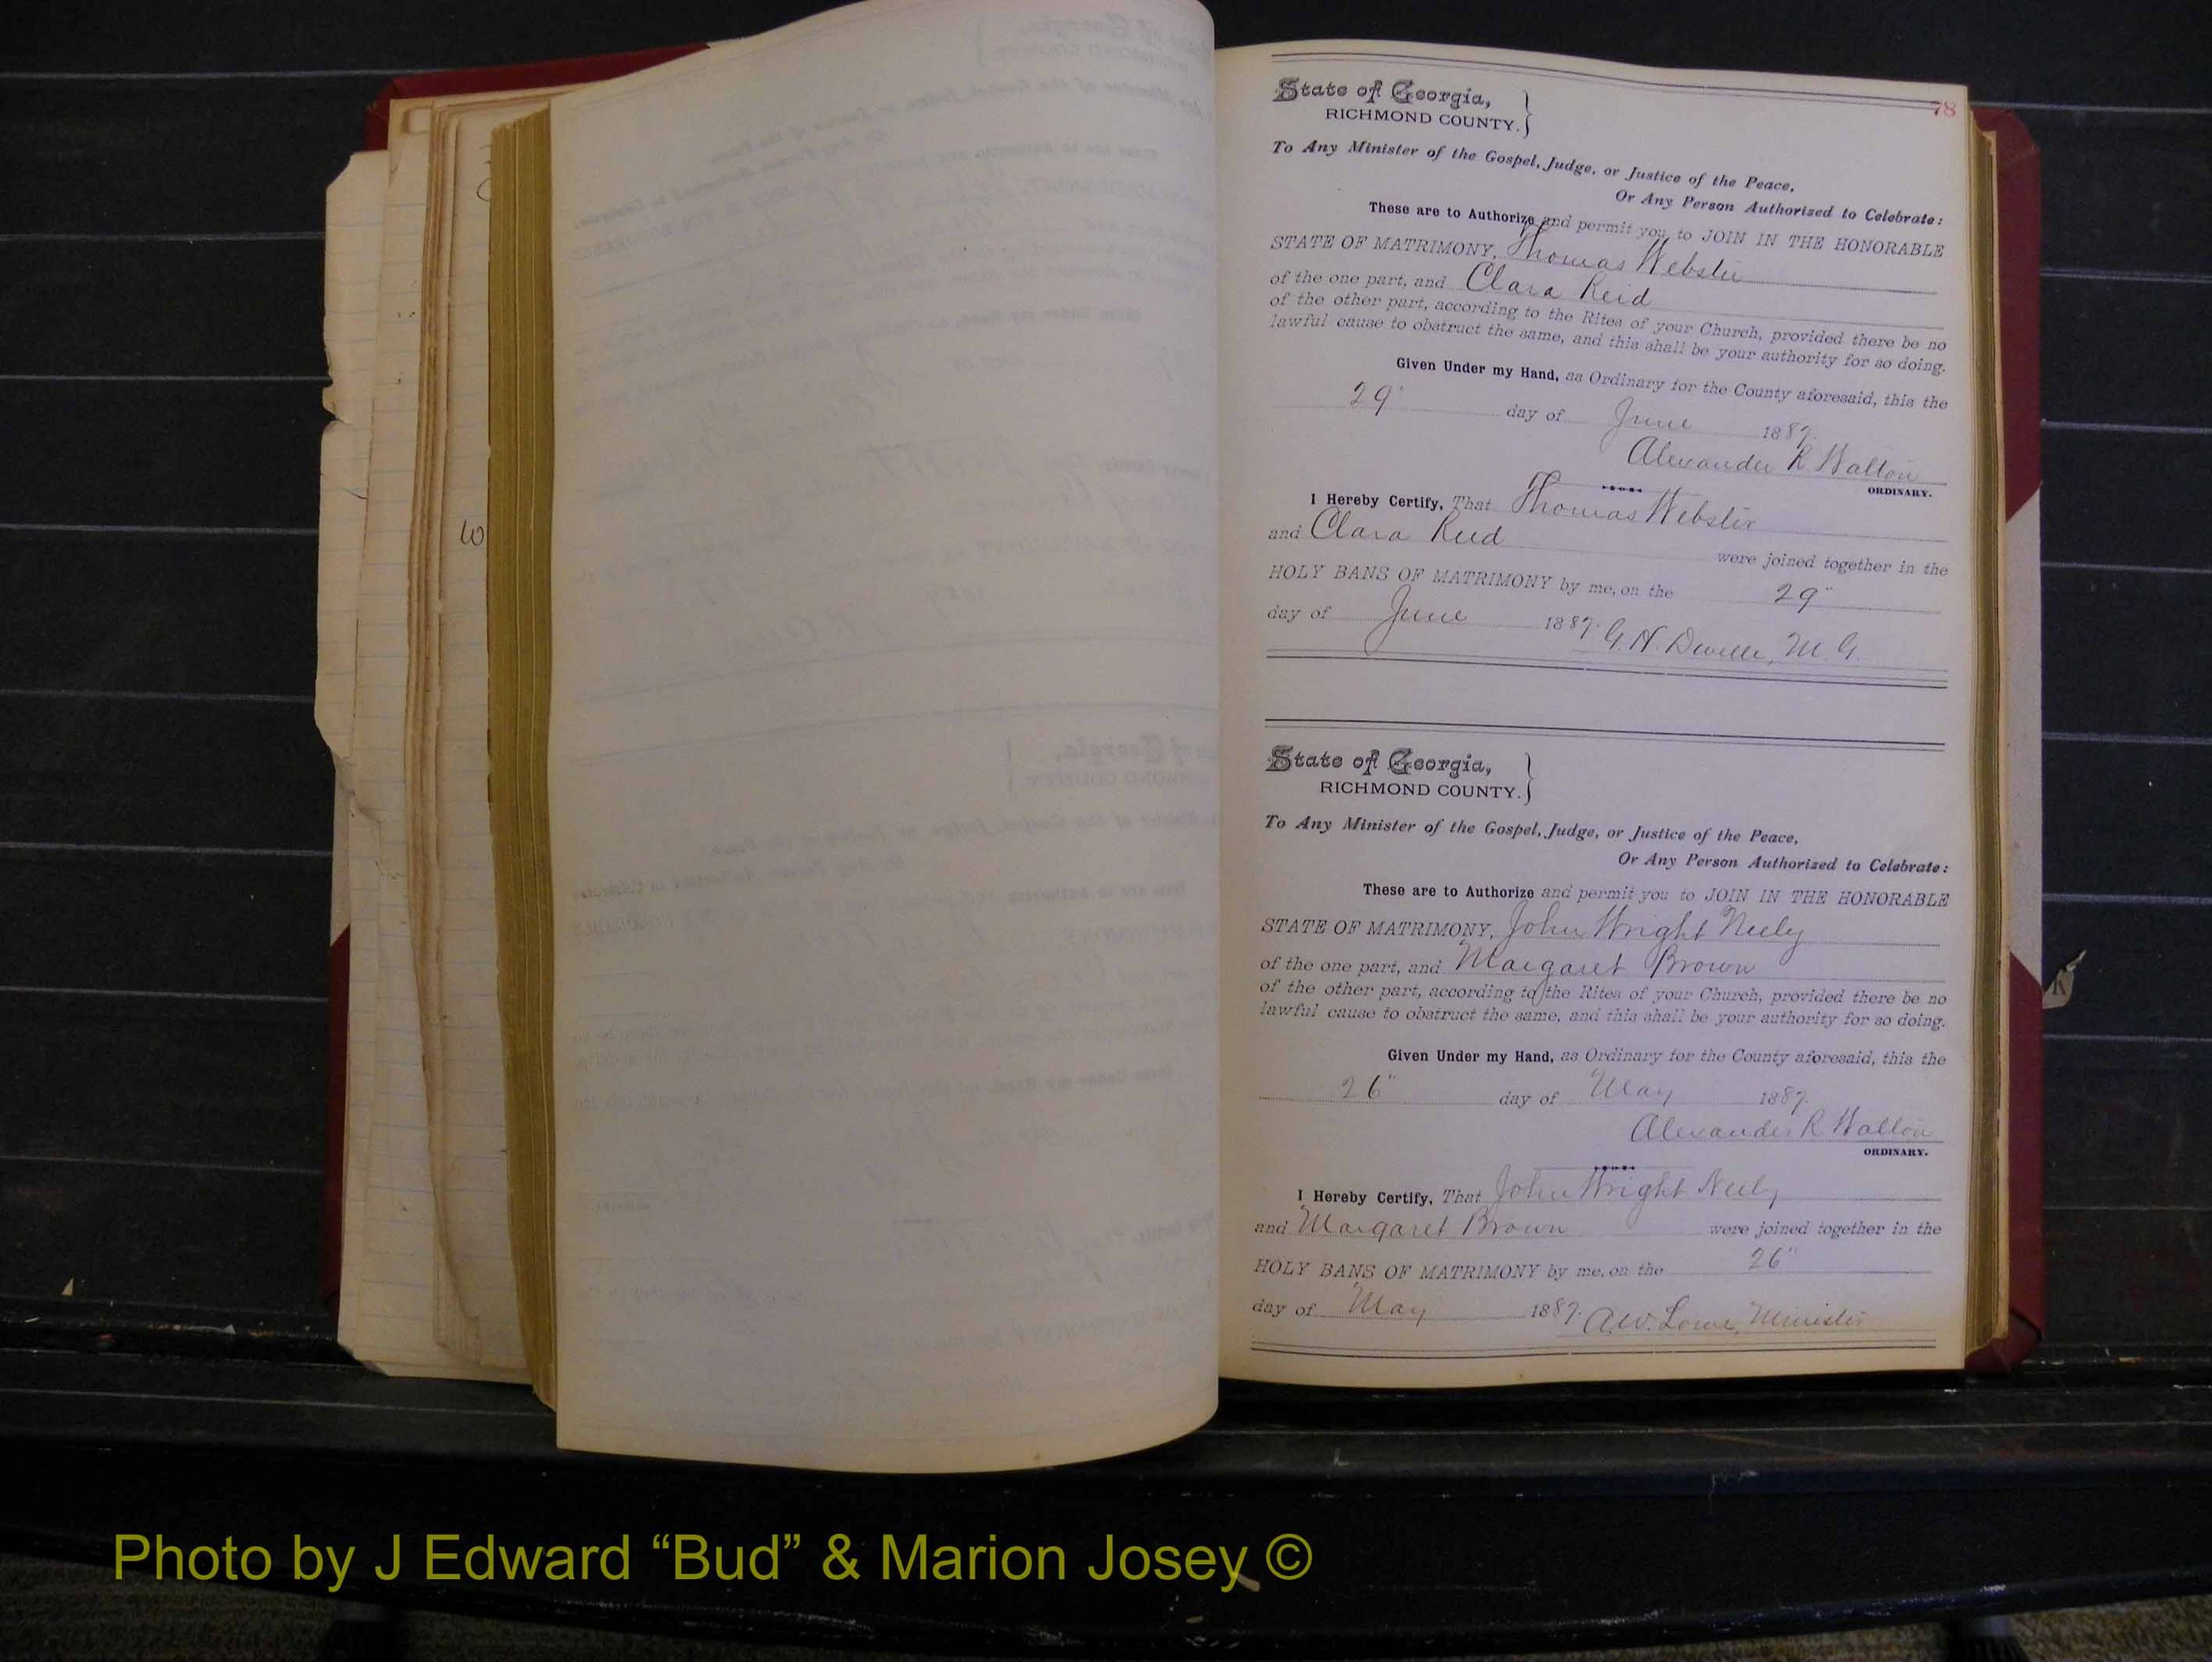 78
State of Georgia,
RICHMOND COUNTY.
To Any Minister of the Gospel, Judge, or Justice of the Peace,
Or Any Person Authorized to Celebrate:
These are to Authorize and permit you to JOIN IN THE HONORABLE
STATE OF MATRIMONY, Thomas Webster
of the one part, and Clara Reid
of the other part, according to the Rites of your Church, provided there be no
lawful cause to obstruct the same, and this shall be your authority for so doing.
Given Under my Hand, as Ordinary for the County aforesaid, this the
29" day of June 1887.
Alexander R. Walton
ORDINARY.
I Hereby Certify, That Thomas Webster
and Clara Reid were joined together in the
HOLY BANS OF MATRIMONY by me, on the 29"
day of June 1887. G. N. M. G.
State of Georgia,
RICHMOND COUNTY.
To Any Minister of the Gospel, Judge, or Justice of the Peace,
Or Any Person Authorized to Celebrate:
These are to Authorize and permit you to JOIN IN THE HONORABLE
STATE OF MATRIMONY, John Wright Neely
of the one part, and Margaret Brown
of the other part, according to the Rites of your Church, provided there be no
lawful cause to obstruct the same, and this shall be your authority for so doing.
Given Under my Hand, as Ordinary for the County aforesaid, this the
26" day of May 1887.
Alexander R Walton
ORDINARY.
I Hereby Certify, That John Wright Neely
and Margaret Brown were joined together in the
HOLY BANS OF MATRIMONY by me, on the 26"
day of May 1887. A. W. Lowe, Minister
Photo by J Edward “Bud” & Marion Josey ©